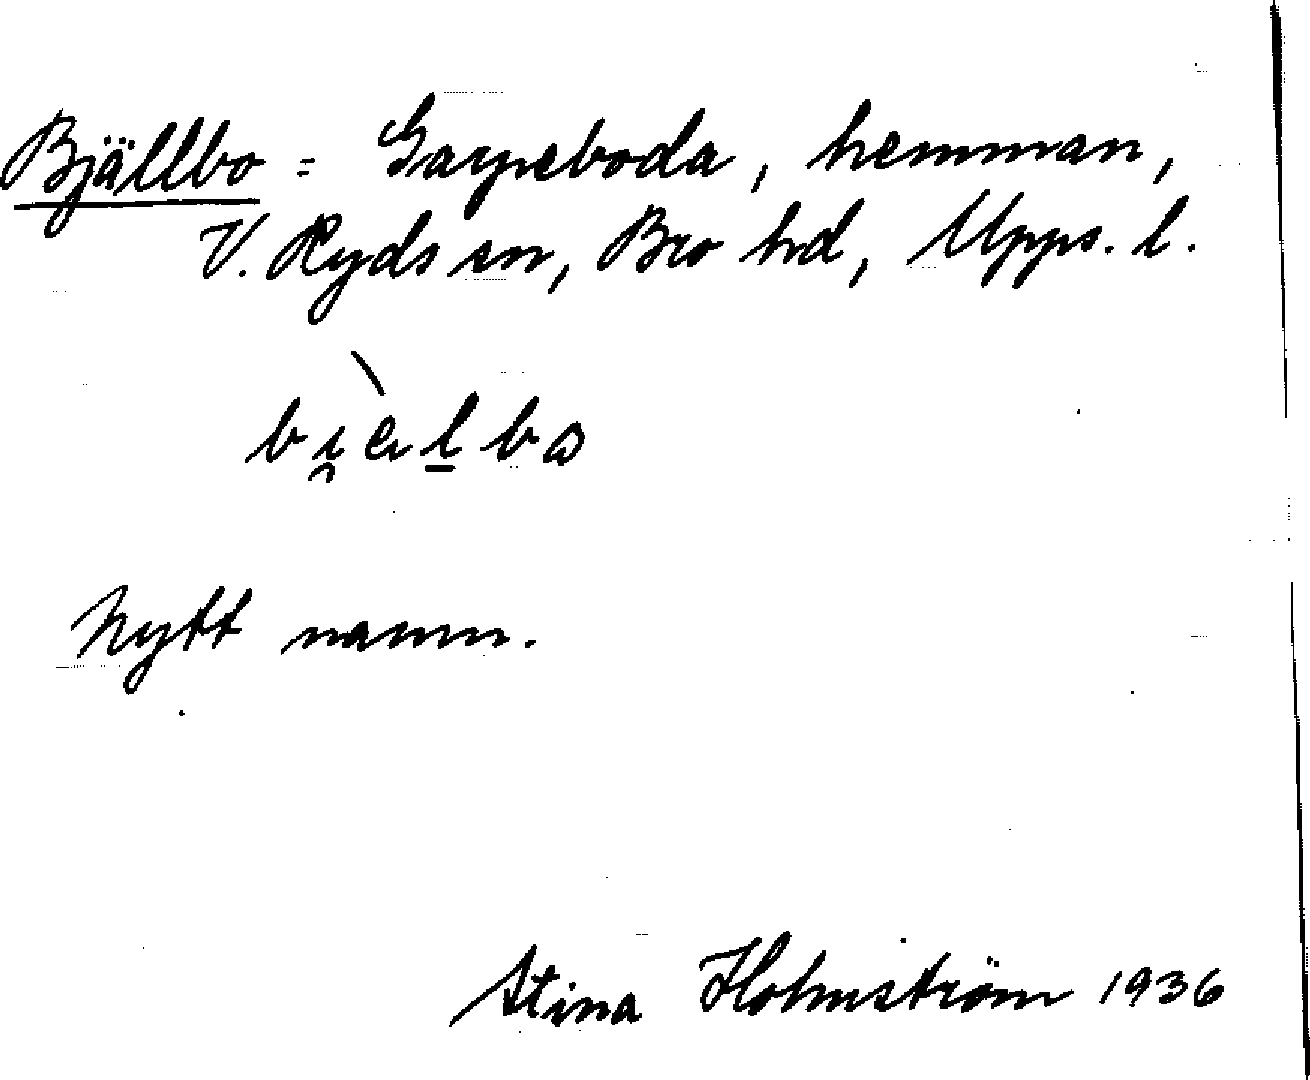 Bjällbo = Garpeboda, hemman,
V. Ryds sn, Bro hd, Upps. l.
Nytt namn.
Stina Holmström 1936